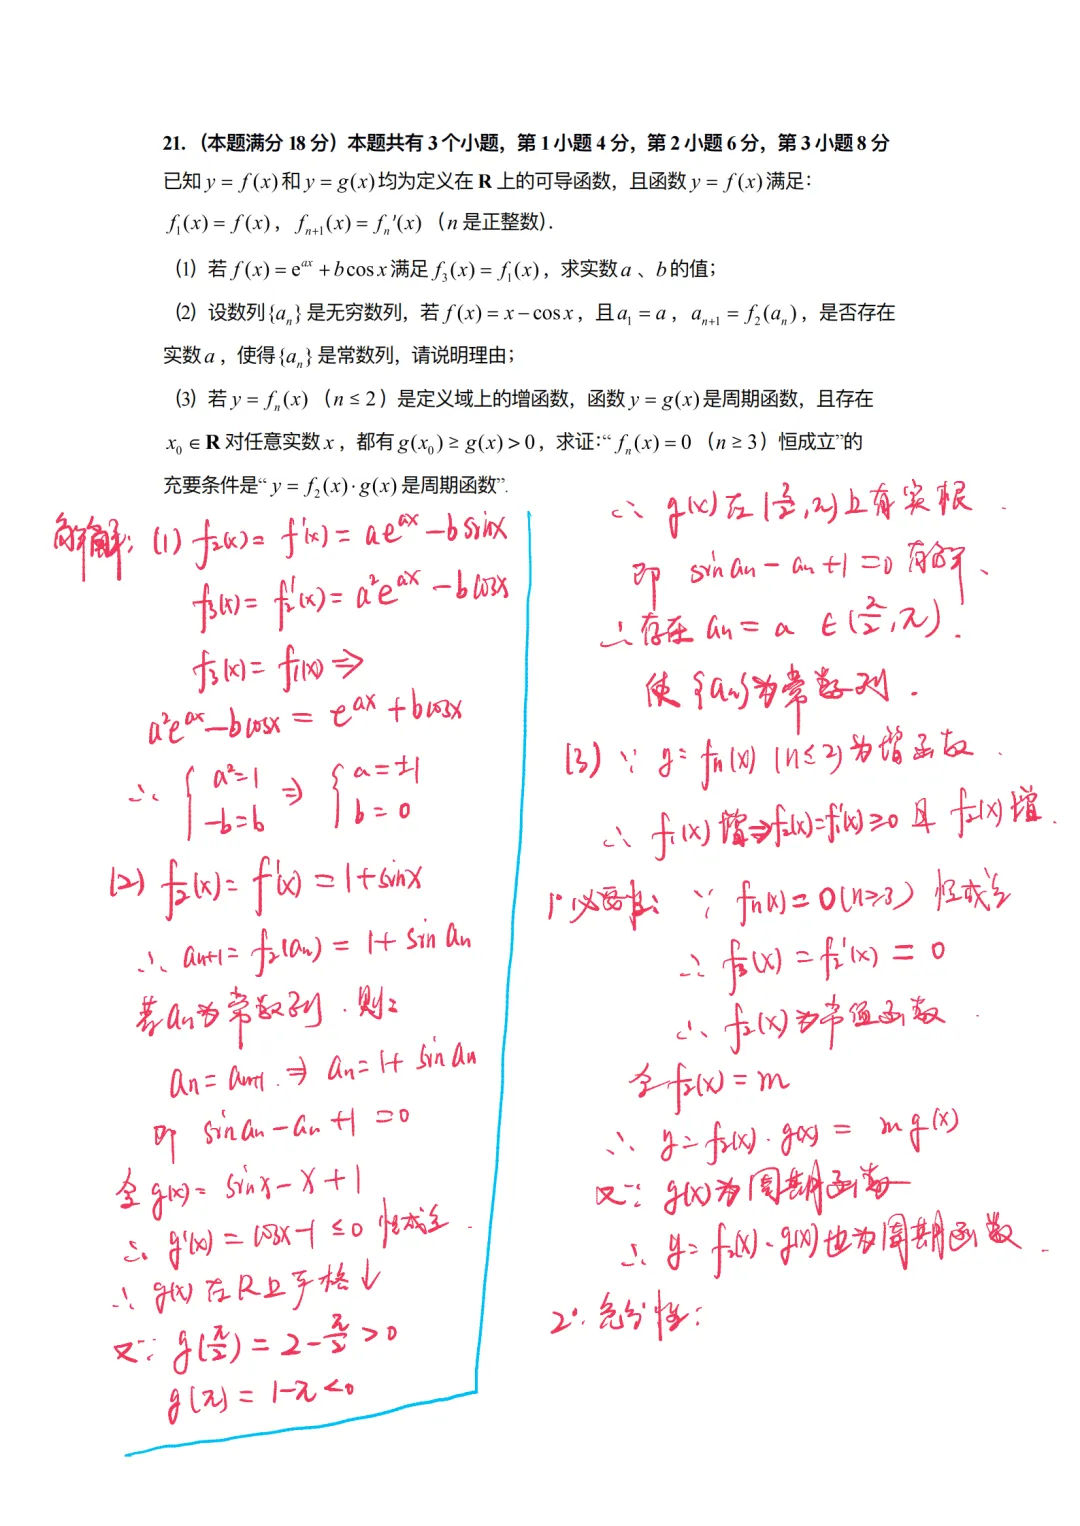 21.（本题满分 18 分）本题共有 3 个小题，第 1 小题 4 分，第 2 小题 6 分，第 3 小题 8 分
已知 y = f(x) 和 y = g(x) 均为定义在 R 上的可导函数，且函数 y = f(x) 满足：
f₁(x) = f(x)，fₙ₊₁(x) = fₙ'(x)（n 是正整数）.
（1）若 f(x) = e^{ax} + b cos x 满足 f₃(x) = f₁(x)，求实数 a 、b 的值；
（2）设数列{aₙ} 是无穷数列，若 f(x) = x − cos x，且 a₁ = a，aₙ₊₁ = f₂(aₙ)，是否存在
实数 a，使得{aₙ} 是常数列，请说明理由；
（3）若 y = fₙ(x)（n ≤ 2）是定义域上的增函数，函数 y = g(x) 是周期函数，且存在
x₀ ∈ R 对任意实数 x，都有 g(x₀) ≥ g(x) > 0，求证：“ fₙ(x) = 0（n ≥ 3）恒成立”的
充要条件是“ y = f₂(x)·g(x) 是周期函数”.
解: (1) f₂(x) = f'(x) = ae^{ax} − b sinx
f₃(x) = f₂'(x) = a²e^{ax} − b cosx
f₃(x) = f₁(x) ⇒
a²e^{ax} − b cosx = e^{ax} + b cosx
∴ { a²=1 ⇒ { a=±1
−b=b b=0
(2) f₂(x) = f'(x) = 1+sinx
∴ aₙ₊₁ = f₂(aₙ) = 1+ sin aₙ
若aₙ为常数列.则:
aₙ = aₙ₊₁ ⇒ aₙ = 1+ sin aₙ
即 sin aₙ − aₙ +1 = 0
令 g(x) = sinx − x + 1
∴ g'(x) = cosx −1 ≤ 0 恒成立.
∴ g(x) 在R上严格↓
又∵ g(π/2) = 2 − π/2 > 0
g(π) = 1−π < 0
∴ g(x) 在 (π/2, π) 上有实根.
即 sin aₙ − aₙ +1 = 0 有解、
∴ 存在 aₙ = a ∈ (π/2, π).
使 {aₙ}为常数列.
(3) ∵ y = fₙ(x) (n≤2) 为增函数.
∴ f₁(x) 增⇒f₂(x)=f₁'(x) ≥ 0 且 f₂(x) 增.
1° 必要性: ∵ fₙ(x) = 0 (n≥3) 恒成立
∴ f₃(x) = f₂'(x) = 0
∴ f₂(x) 为常值函数.
令 f₂(x) = m
∴ y = f₂(x)·g(x) = m g(x)
又∵ g(x)为周期函数
∴ y = f₂(x)·g(x) 也为周期函数.
2°. 充分性: